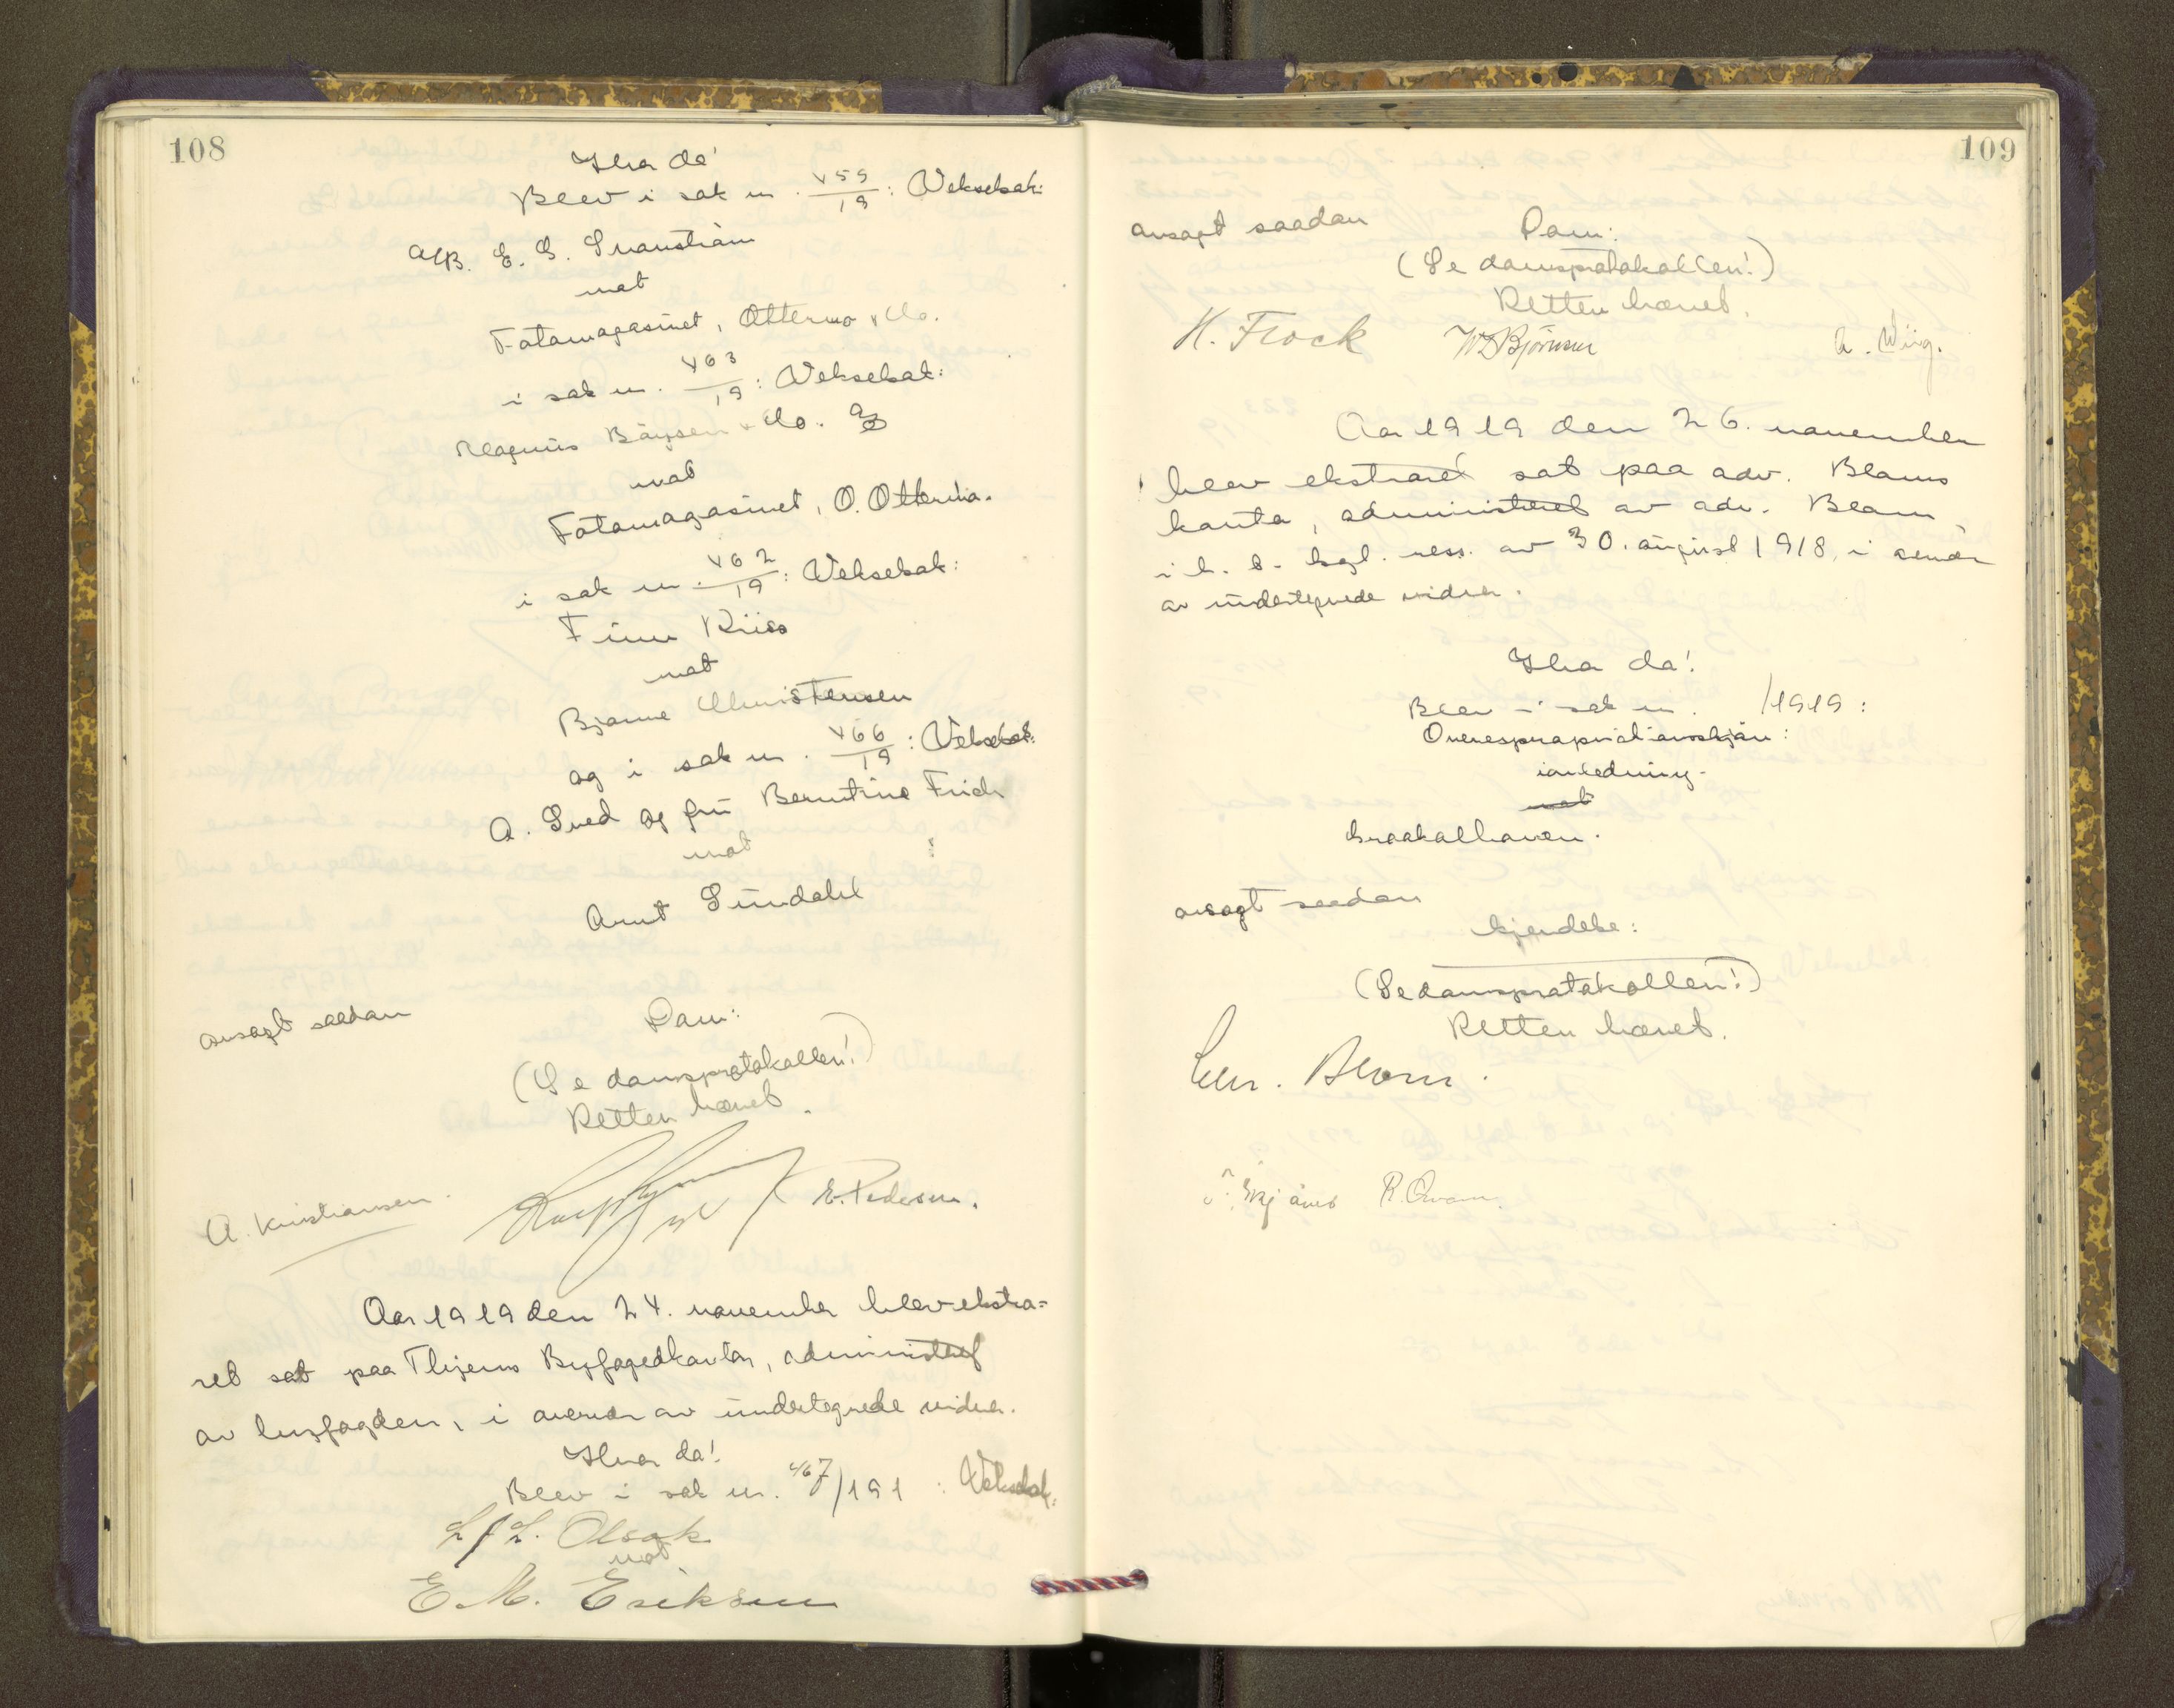 108
Hvor da!
Blev i sak nr. 455/19: Vekselsak:
A/B. E. G. Svanstrøm
mot
Fotomagasinet, Ottermo & Co.
i sak nr. 463/19: Vekselsak:
Magnus Bøysen & Co.
mot
Fotomagasinet, O. Ottermo.
i sak nr. 462/19: Vekselsak:
Finn Riiso
mot
Bjarne Christensen
og i sak nr. 466/19: Vekselsak:
A. Sved og fru Berntine Frich
mot
Arnt Sundahl
avsagt saadan
Dom:
(Se domsprotokollen!)
Retten hævet.
A. Kristiansen.
E. Pedersen.
Aar 1919 den 24. november blev ekstra=
ret sat paa Thjems Byfogedkontor, administrert
av byfogden, i overvær av undertegnede vidner.
Hvor da!
Blev i sak nr. 467/191 : Vekselsak:
L/L. Olsok
mot
E. M. Eriksen
109
avsagt saadan
Dom:
(Se domsprotokollen!)
Retten hævet.
H. Frock
W Bjørnsen
A. Wiig.
Aar 1919 den 26. november
blev ekstraret sat paa adv. Bloms
kontor, administrert av adv. Blom,
i h. t. kgl. ress. av 30. august 1918, i
av undertegnede vidner.
Hvor da!
Blev i sak nr. /1919:
Overekspropriationsskjøn:
ianledning
mot
Graakalbanen.
avsagt saadan
kjendelse:
(Se domsprotokollen!)
Retten hævet.
Chr. Blom.
R. Qvam.